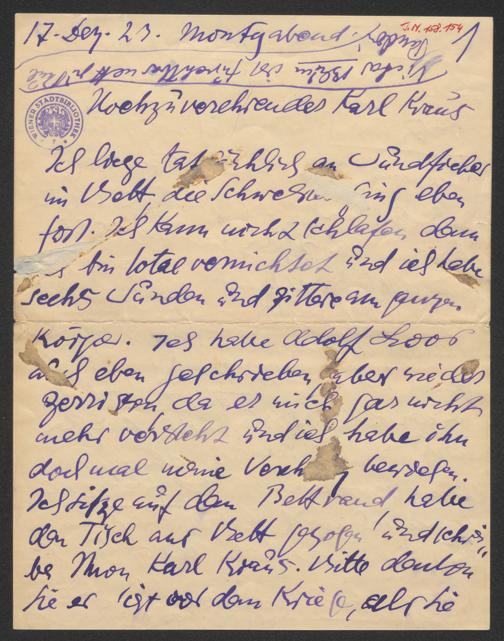 17. Dez. 23. Montagabend.
J.N. 158.154
1
WIENER STADTBIBLIOTHEK
Hochzuverehrender Karl Kraus
Ich liege tatsächlich an Wundfieber
im Bett, die Schwester ging eben
fort. Ich kann nicht schlafen denn
ich bin total vernichtet und ich habe
sechs Wunden und zittere am ganzen
Körper. Ich habe Adolf Loos
auch eben geschrieben aber wieder
zerrissen, da er mich gar nicht
mehr versteht und ich habe ihn
doch mal meine Verehrung bewiesen.
Ich sitze auf dem Bettrand, habe
den Tisch ans Bett gezogen und schrei
be Ihnen Karl Kraus. Bitte denken
Sie es ist vor dem Kriege, als Sie